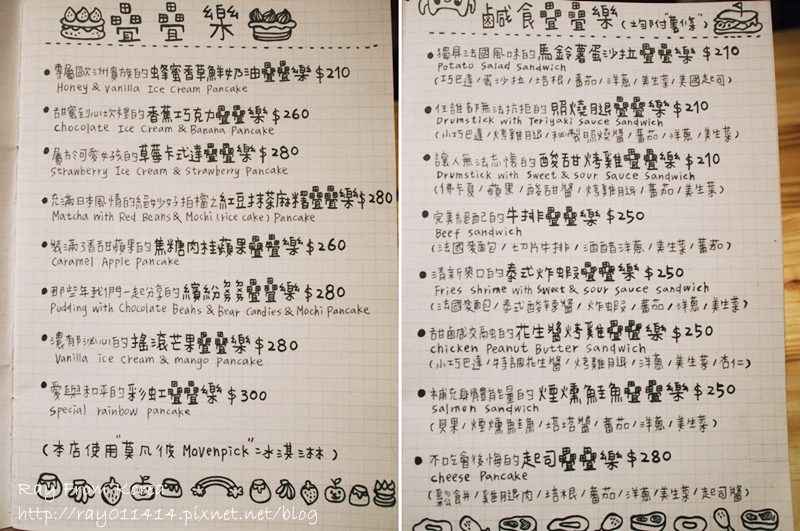 疊疊樂
專屬歐洲貴族的蜂蜜香草鮮奶油疊疊樂$210
Honey & Vanilla Ice Cream Pancake
甜蜜到心坎裡的香蕉巧克力疊疊樂$260
chocolate Ice Cream & Banana Pancake
屬於可愛女孩的草莓卡式達疊疊樂$280
Strawberry Ice Cream & Strawberry Pancake
充滿日本風情的絕妙好拍檔之紅豆抹茶麻糬疊疊樂$280
Matcha with Red Beans & Mochi (rice cake) Pancake
裝滿了香甜蘋果的焦糖肉桂蘋果疊疊樂$260
Caramel Apple Pancake
那些年我們一起分享的繽紛ㄋㄋ疊疊樂$280
Pudding with Chocolate Beans & Bear Candies & Mochi Pancake
濃郁冰心的搖滾芒果疊疊樂$280
Vanilla ice cream & mango pancake
愛與和平的彩虹疊疊樂$300
special rainbow pancake
(本店使用"莫凡彼 Movenpick"冰淇淋)
Ray From Korea
http://ray011414.pixnet.net/blog
鹹食疊疊樂(均附"薯條")
獨具法國風味的馬鈴薯蛋沙拉疊疊樂$210
Potato Salad Sandwich
(巧巴達/蛋沙拉/培根/蕃茄/洋蔥/美生菜/美國起司)
任誰都無法抗拒的照燒腿疊疊樂$210
Drumstick with Teriyaki Sauce Sandwich
(小巧巴達/烤雞腿/秘製照燒醬/蕃茄/洋蔥/美生菜)
讓人無法忘懷的酸甜烤雞疊疊樂$210
Drumstick with Sweet & Sour Sauce Sandwich
(佛卡夏/蘋果/酸甜醬/烤雞腿/蕃茄/美生菜)
完美絕配的牛排疊疊樂$250
Beef sandwich
(法國麵包/切片牛排/酒醋洋蔥/美生菜/蕃茄)
清新爽口的泰式炸蝦疊疊樂$250
Fries shrime with sweet & sour sauce sandwich
(法國麵包/泰式酸辣醬/炸蝦/蕃茄/洋蔥/美生菜)
甜鹹交融的花生醬烤雞疊疊樂$250
chicken Peanut Butter Sandwich
(小巧巴達/特調花生醬/烤雞腿/洋蔥/美生菜/杏仁)
補充身體能量的煙燻鮭魚疊疊樂$250
Salmon sandwich
(貝果/煙燻鮭魚/塔塔醬/蕃茄/洋蔥/美生菜)
不吃會後悔的起司疊疊樂$280
cheese Pancake
(鬆餅/雞腿肉/培根/蕃茄/洋蔥/美生菜/起司醬)